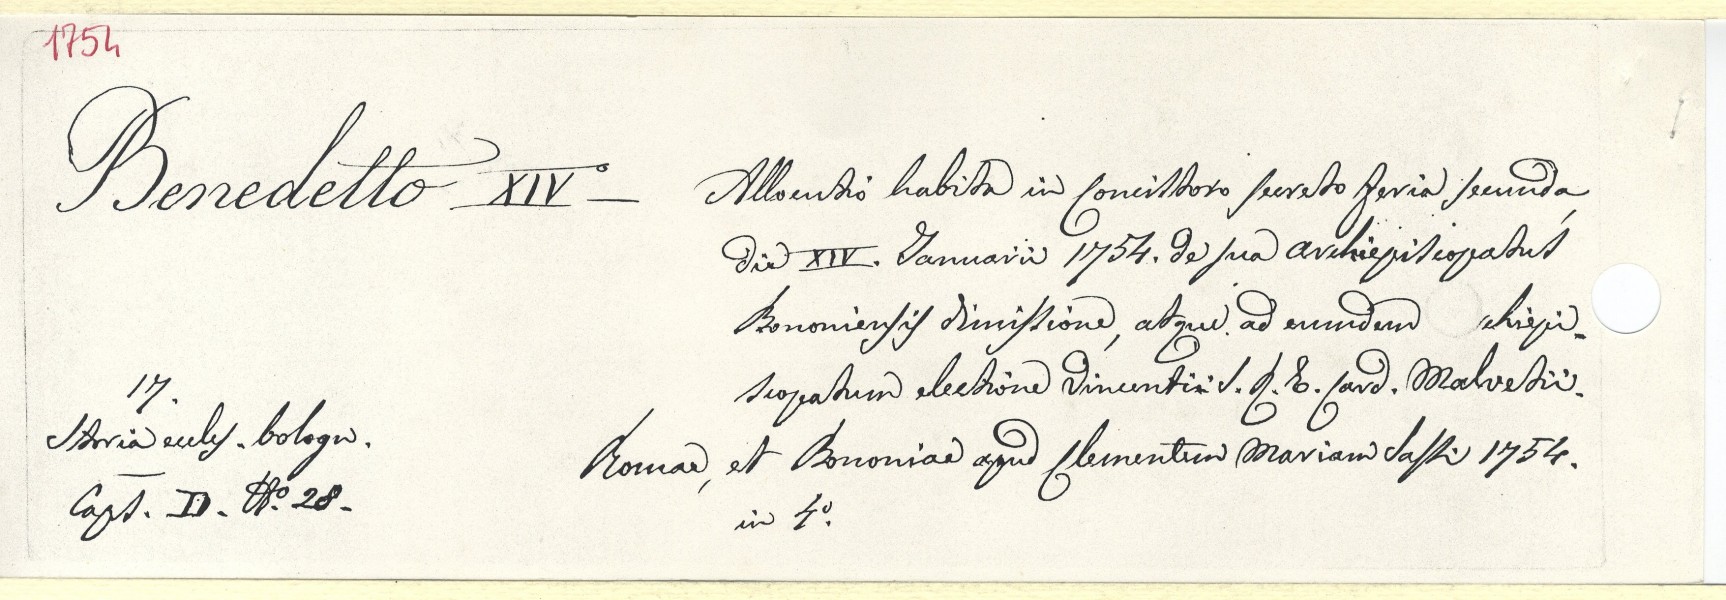 1754
Benedetto XIV.° —
Allocutio habita in Concistoro secreto feria secunda,
die XIV. Januarii 1754. de sua archiepiscopatus
Bononiensis dimissione, atque ad eumdem chiepi-
scopatum electione Vincentii S. R. E. Card. Malvetii.
Romae, et Bononiae apud Clementem Mariam Sassi 1754.
in 4°.
17.
Storia eccles. bologn.
Capt. D. N.° 28.